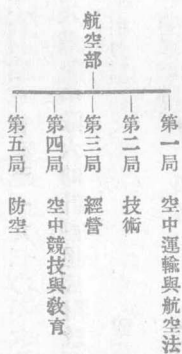 航空部
第一局 空中運輸與航空法
第二局 技術
第三局 經營
第四局 空中競技與教育
第五局 防空